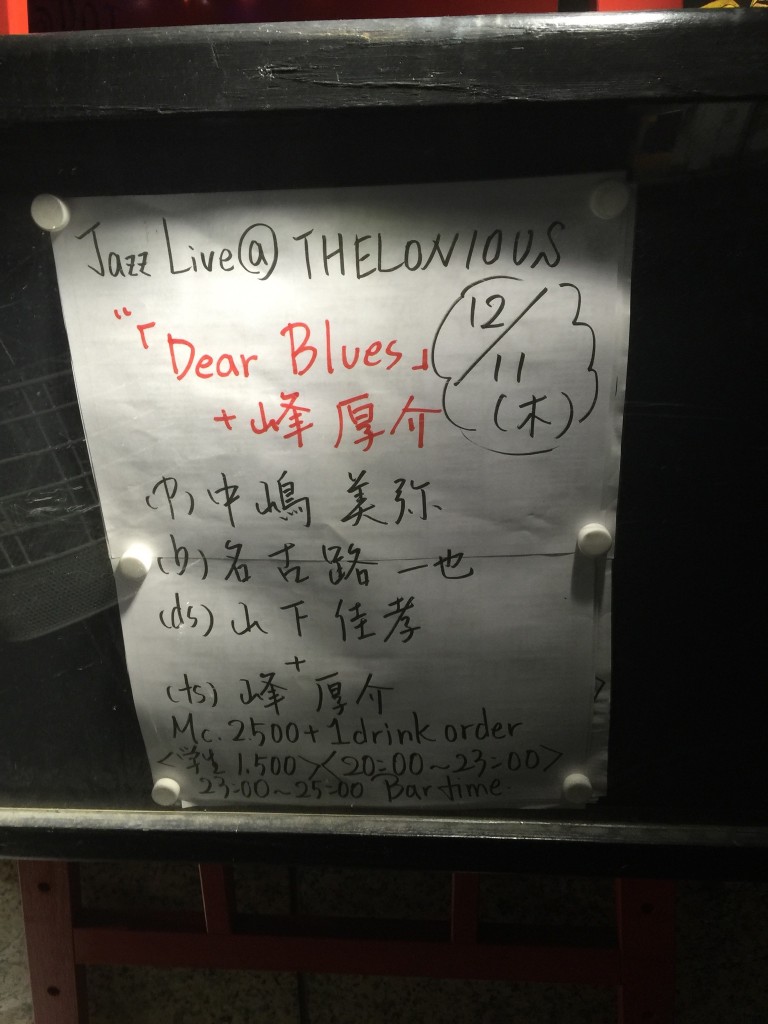 Jazz Live@ THELONIOUS
"「Dear Blues」
+峰 厚介
12/11
(木)
(P)中嶋 美弥
(b)名古路 一也
(ds)山下 佳孝
+
(ts)峰 厚介
Mc.2500+1drink order
<学生 1.500><20:00~23:00>
23:00~25:00 Bar time.